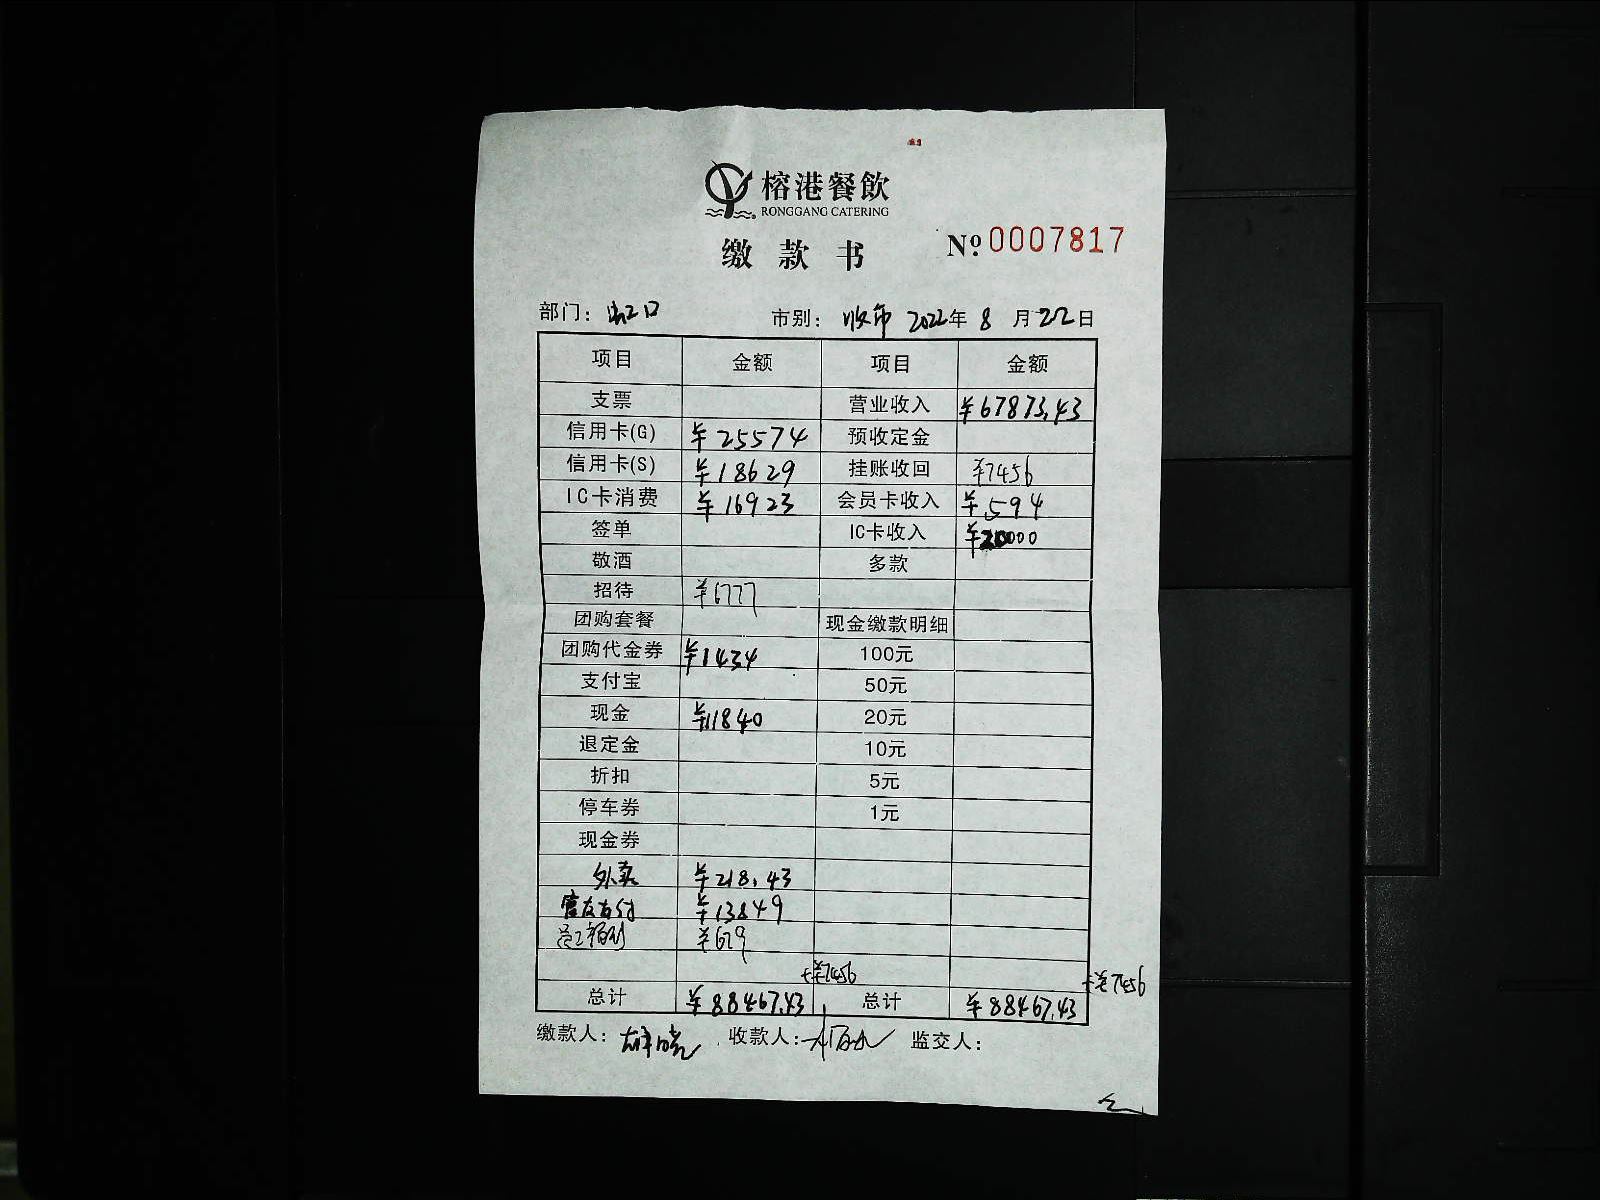 榕港餐飲
RONGGANG CATERING
缴款书 № 0007817
部门： 市别：收市 2022年8月22日
项目 金额 项目 金额
支票 营业收入 ¥67873.43
信用卡(G) ¥25574 预收定金
信用卡(S) ¥18629 挂账收回 ¥7456
IC卡消费 ¥16923 会员卡收入 ¥594
签单 IC卡收入 ¥20000
敬酒 多款
招待 ¥6777
团购套餐 现金缴款明细
团购代金券 ¥1434 100元
支付宝 50元
现金 ¥11840 20元
退定金 10元
折扣 5元
停车券 1元
现金券
外卖 ¥218.43
¥13849
¥679
+¥7456 +¥7456
总计 ¥88467.43 总计 ¥88467.43
缴款人： 收款人： 监交人：